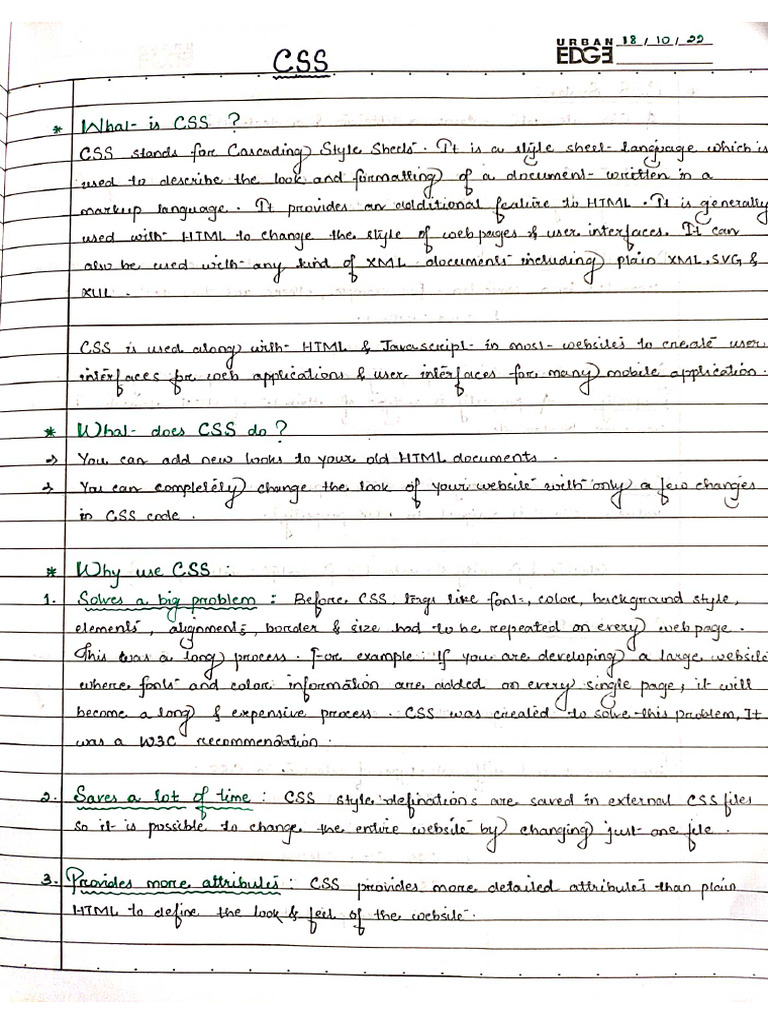 CSS
URBAN EDGE 18/10/22
* What is CSS ?
CSS stands for Cascading Style Sheets. It is a style sheet language which is
used to describe the look and formatting of a document written in a
markup language. It provides an additional feature to HTML. It is generally
used with HTML to change the style of web pages & user interfaces. It can
also be used with any kind of XML documents including plain XML, SVG &
XUL.
CSS is used along with HTML & Javascript in most websites to create user
interfaces for web applications & user interfaces for many mobile application.
* What does CSS do ?
→ You can add new looks to your old HTML documents.
→ You can completely change the look of your website with only a few changes
in CSS code.
* Why use CSS :
1. Solves a big problem : Before CSS, tags like font, color, background style,
elements, alignments, border & size had to be repeated on every web page.
This was a long process. For example: If you are developing a large website
where fonts and color information are added on every single page, it will
become a long & expensive process. CSS was created to solve this problem, It
was a W3C recommendation.
2. Saves a lot of time : CSS style definations are saved in external CSS files
so it is possible to change the entire website by changing just one file.
3. Provides more attributes : CSS provides more detailed attributes than plain
HTML to define the look & feel of the website.